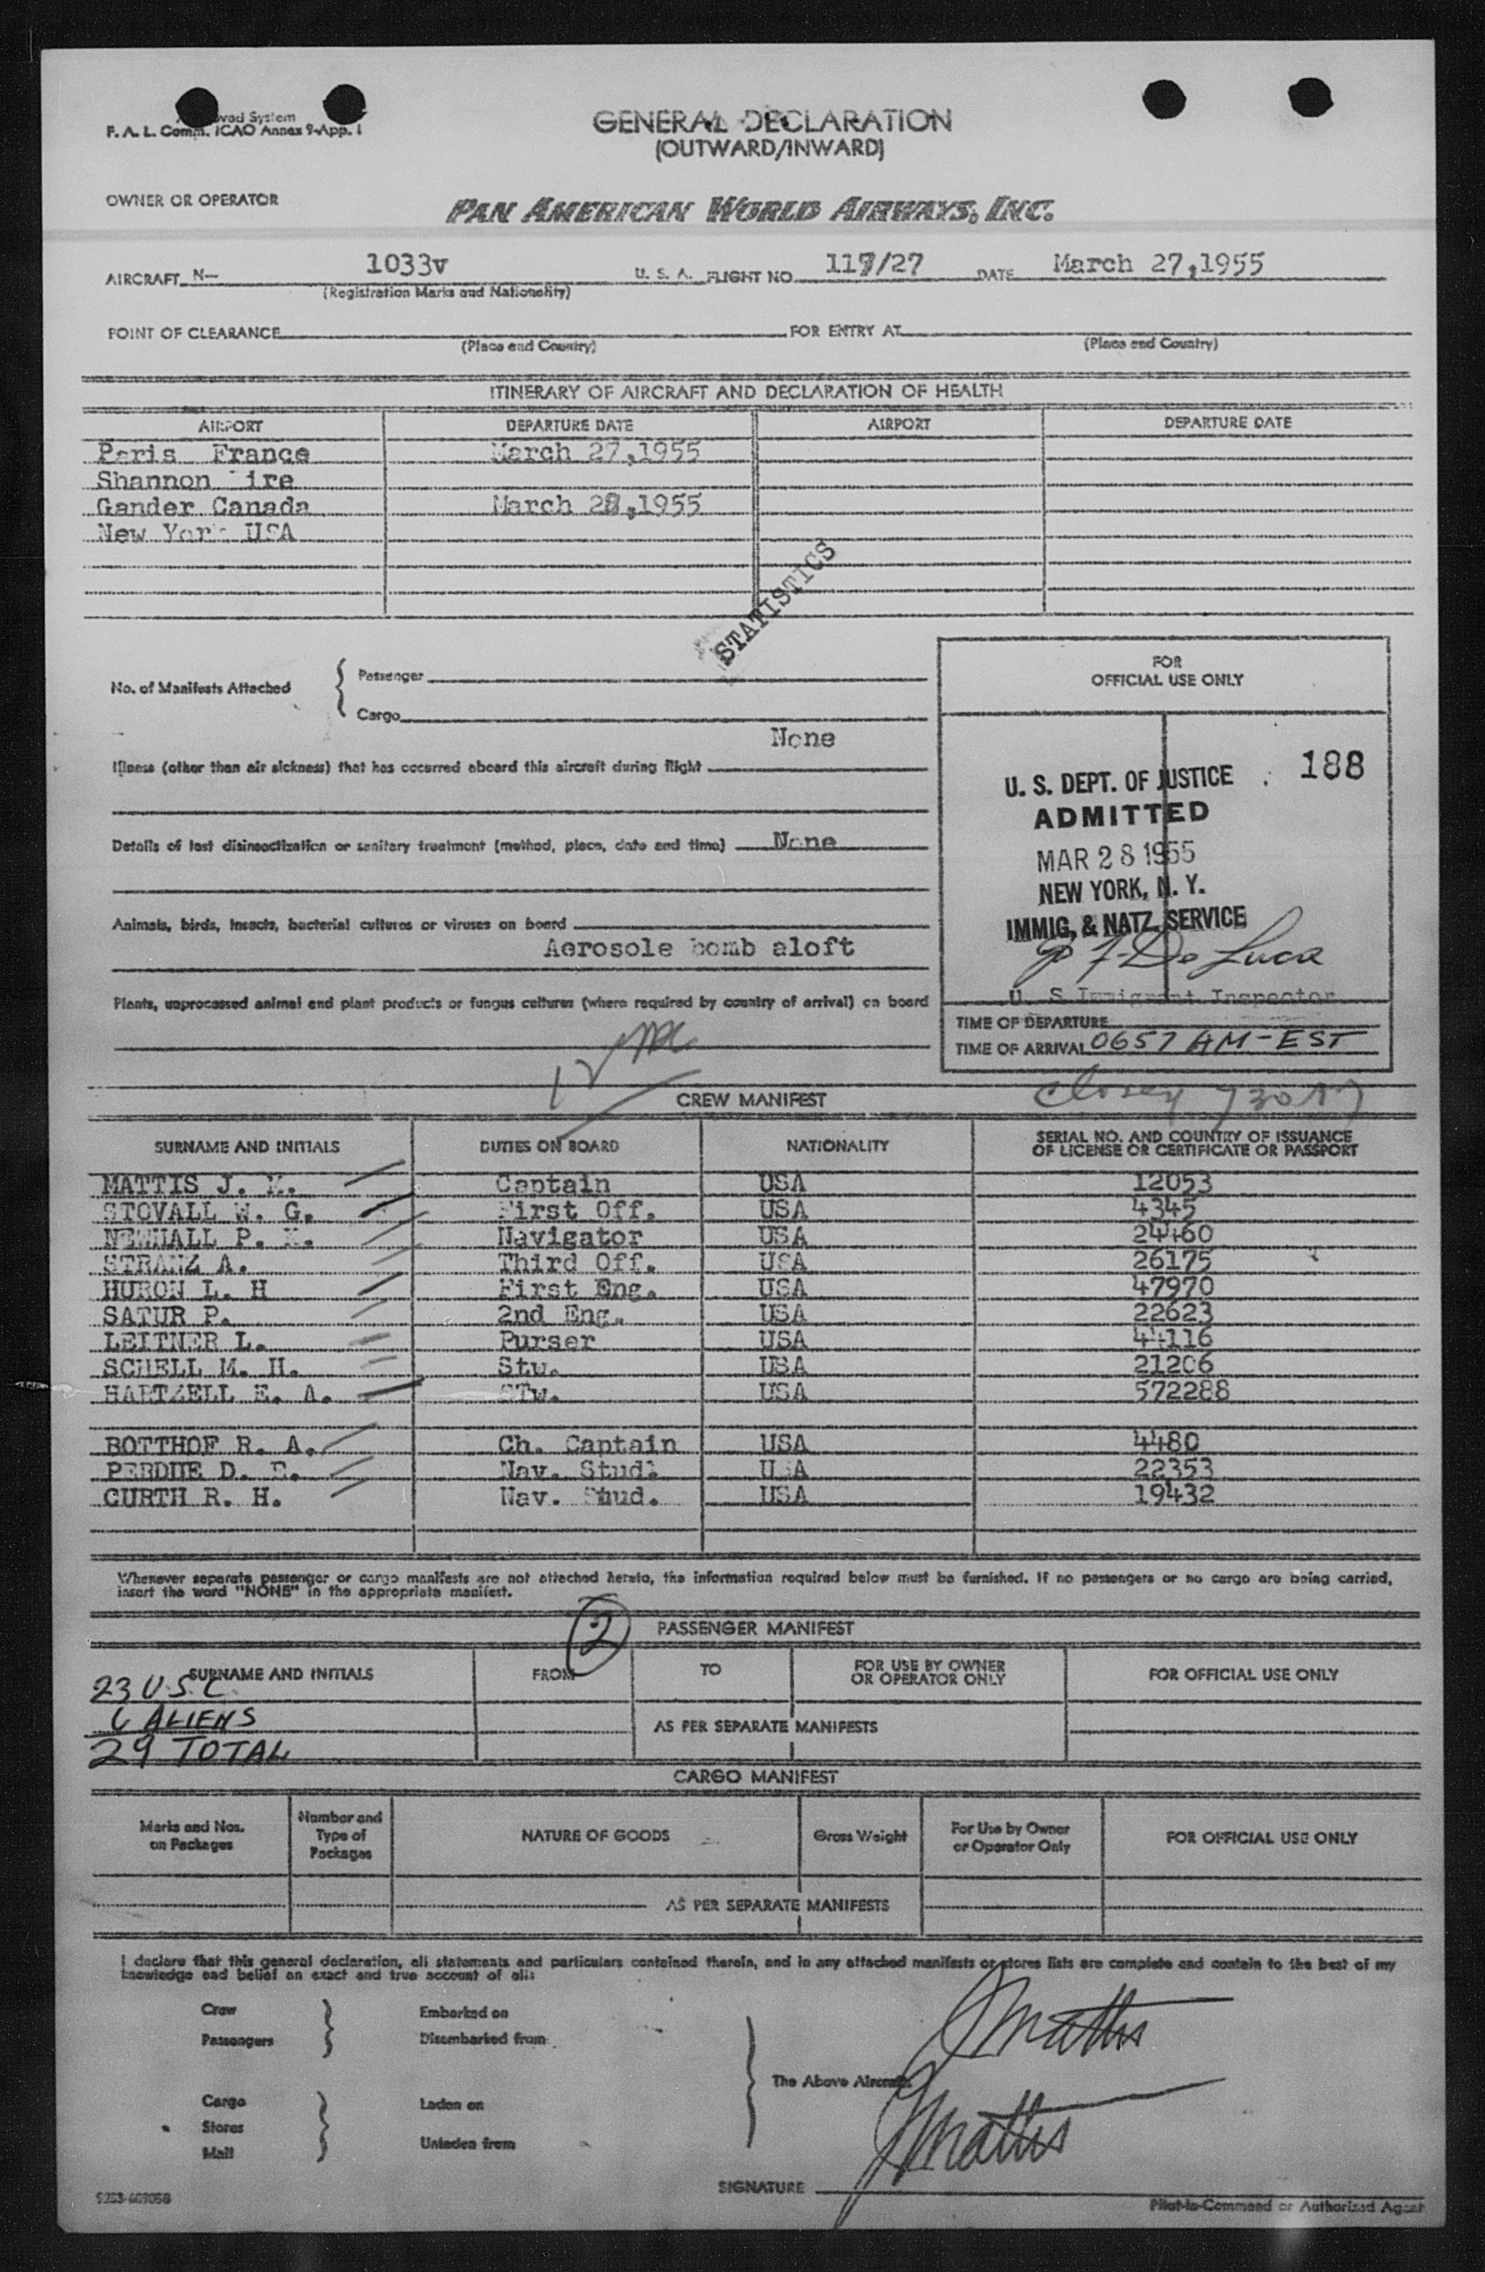 F. A. L. Comm. ICAO Annex 9-App. 1
GENERAL DECLARATION
(OUTWARD/INWARD)
OWNER OR OPERATOR
PAN AMERICAN WORLD AIRWAYS, INC.
AIRCRAFT N- 1033v U. S. A. FLIGHT NO. 117/27 DATE March 27,1955
(Registration Marks and Nationality)
POINT OF CLEARANCE FOR ENTRY AT
(Place and Country) (Place and Country)
ITINERARY OF AIRCRAFT AND DECLARATION OF HEALTH
AIRPORT DEPARTURE DATE AIRPORT DEPARTURE DATE
Paris France March 27,1955
Shannon ire
Gander Canada March 28,1955
New York USA
STATISTICS
No. of Manifests Attached { Passenger
Cargo
FOR
OFFICIAL USE ONLY
None
Illness (other than air sickness) that has occurred aboard this aircraft during flight
Details of last disinsectization or sanitary treatment (method, place, date and time) None
Animals, birds, insects, bacterial cultures or viruses on board
Aerosole bomb aloft
Plants, unprocessed animal and plant products or fungus cultures (where required by country of arrival) on board
188
U. S. DEPT. OF JUSTICE
ADMITTED
MAR 28 1955
NEW YORK, N. Y.
IMMIG. & NATZ. SERVICE
De Luca
U. S Immigrant Inspector
TIME OF DEPARTURE
TIME OF ARRIVAL 0657 AM-EST
CREW MANIFEST
SURNAME AND INITIALS DUTIES ON BOARD NATIONALITY SERIAL NO. AND COUNTRY OF ISSUANCE
OF LICENSE OR CERTIFICATE OR PASSPORT
MATTIS J. Captain USA 12053
STOVALL W. G. First Off. USA 4345
NEWHALL P. Navigator USA 24460
STRANZ A. Third Off. USA 26175
HURON L. H First Eng. USA 47970
SATUR P. 2nd Eng. USA 22623
LEITNER L. Purser USA 44116
SCHELL M. H. Stw. USA 21206
HARTZELL E. A. STw. USA 572288
BOTTHOF R. A. Ch. Captain USA 4480
PERDUE D. E. Nav. Stud. USA 22353
CURTH R. H. Nav. Stud. USA 19432
Whenever separate passenger or cargo manifests are not attached hereto, the information required below must be furnished. If no passengers or no cargo are being carried,
insert the word "NONE" in the appropriate manifest.
2
PASSENGER MANIFEST
SURNAME AND INITIALS FROM TO FOR USE BY OWNER
OR OPERATOR ONLY FOR OFFICIAL USE ONLY
23 U.S.C.
6 ALIENS
AS PER SEPARATE MANIFESTS
29 TOTAL
CARGO MANIFEST
Marks and Nos.
on Packages Number and
Type of
Packages NATURE OF GOODS Gross Weight For Use by Owner
or Operator Only FOR OFFICIAL USE ONLY
AS PER SEPARATE MANIFESTS
I declare that this general declaration, all statements and particulars contained therein, and in any attached manifests or stores lists are complete and contain to the best of my
knowledge and belief an exact and true account of all:
Crew Embarked on
Passengers Disembarked from
The Above Aircraft
Cargo Laden on
Stores
Mail Unladen from
J Mattis
J Mattis
SIGNATURE
Pilot-in-Command or Authorized Agent